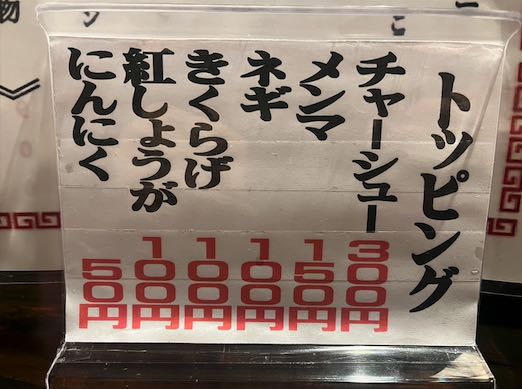 トッピング
チャーシュー 300円
メンマ 150円
ネギ 100円
きくらげ 100円
紅しょうが 100円
にんにく 50円
物